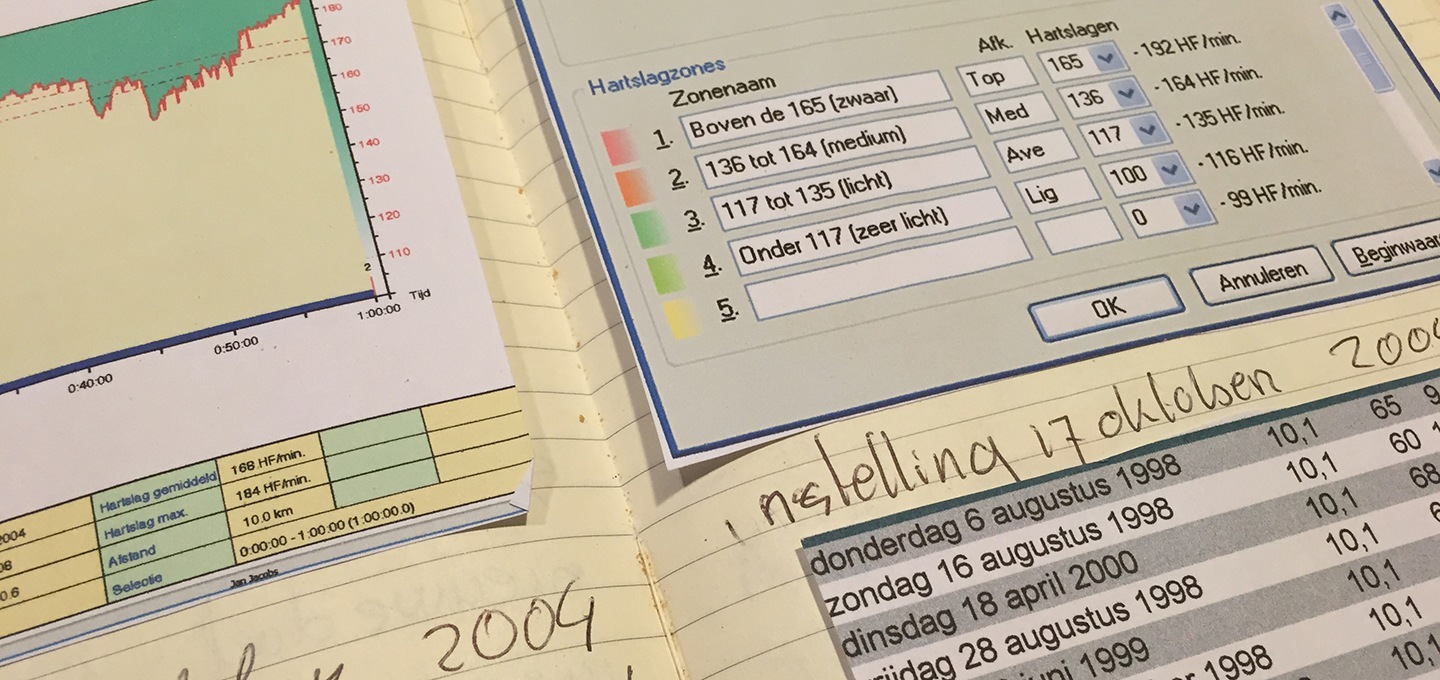 180
170
160
150
140
130
120
110
2
0:40:00
0:50:00
1:00:00
Tijd
2004
Hartslag gemiddeld 168 HF/min.
Hartslag max. 184 HF/min.
Afstand 10.0 km
0.6 Selectie 0:00:00 - 1:00:00 (1:00:00.0)
Jan Jacobs
2004
Hartslagzones
Zonenaam Afk. Hartslagen
1. Boven de 165 (zwaar) Top 165 - 192 HF/min.
2. 136 tot 164 (medium) Med 136 - 164 HF/min.
3. 117 tot 135 (licht) Ave 117 - 135 HF/min.
4. Onder 117 (zeer licht) Lig 100 - 116 HF/min.
5. 0 - 99 HF/min.
OK Annuleren Beginwaar
instelling 17 oktober 2004
donderdag 6 augustus 1998 10,1 65 9
zondag 16 augustus 1998 10,1 60
dinsdag 18 april 2000 10,1 68
rijdag 28 augustus 1998 10,1
juni 1999 10,1
1998 10,1
10,1